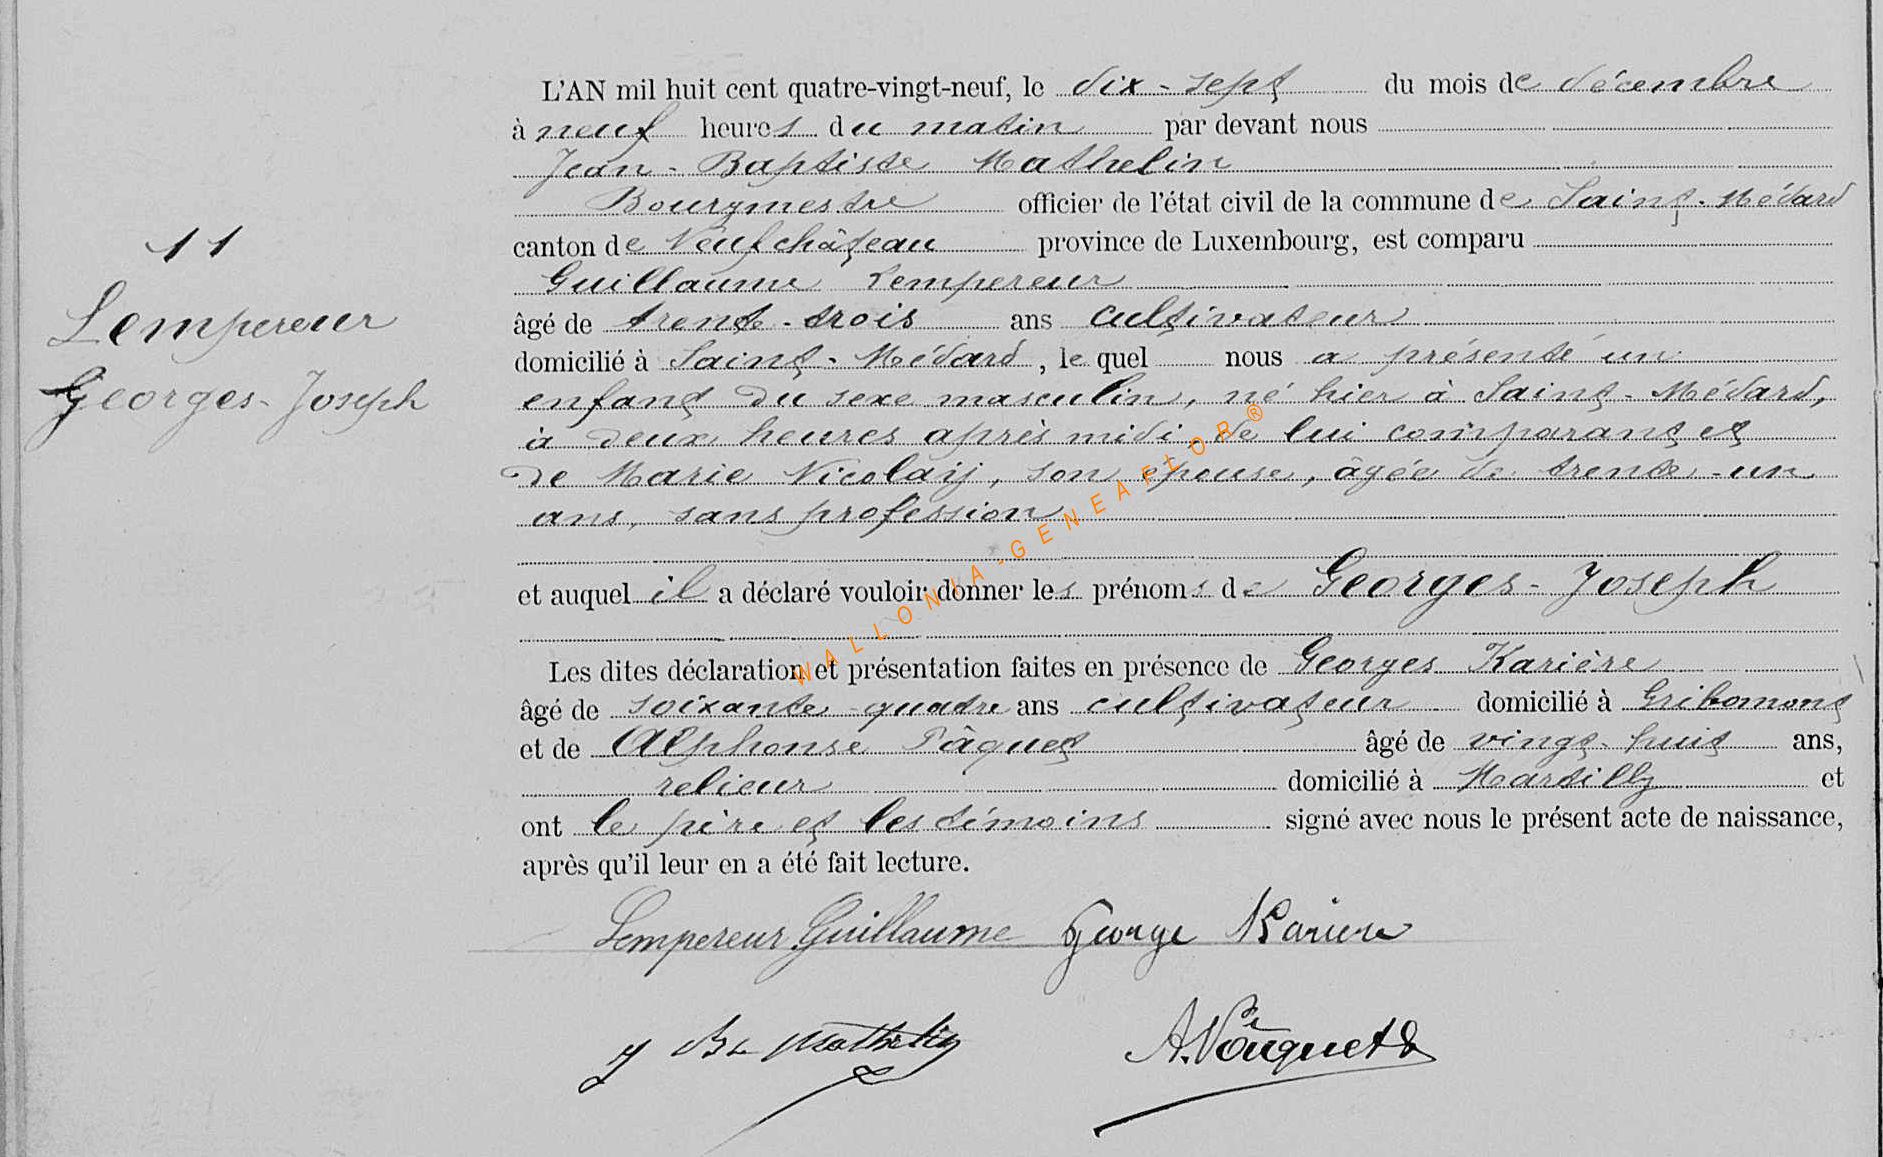 L'AN mil huit cent quatre-vingt-neuf, le dix-sept du mois de décembre
à neuf heures du matin par devant nous
Jean-Baptiste Mathelin
Bourgmestre officier de l'état civil de la commune de Saint-Médard
11
canton de Neufchâteau province de Luxembourg, est comparu
Guillaume Lempereur
Lempereur
âgé de trente-trois ans cultivateur
domicilié à Saint-Médard, le quel nous a présenté un
Georges-Joseph
enfant du sexe masculin, né hier à Saint-Médard,
à deux heures après midi, de lui comparant et
de Marie Nicolaij, son épouse, âgée de trente-un
ans, sans profession
et auquel il a déclaré vouloir donner les prénoms de Georges-Joseph
WALLONIA-GENEAFLOR®
Les dites déclaration et présentation faites en présence de Georges Karière
âgé de soixante-quatre ans cultivateur domicilié à Gribomont
et de Alphonse Pâquet âgé de vingt-huit ans,
relieur domicilié à Martilly et
ont le père et les témoins signé avec nous le présent acte de naissance,
après qu'il leur en a été fait lecture.
Lempereur Guillaume George Kariere
J Bte Mathelin A. Pâquet